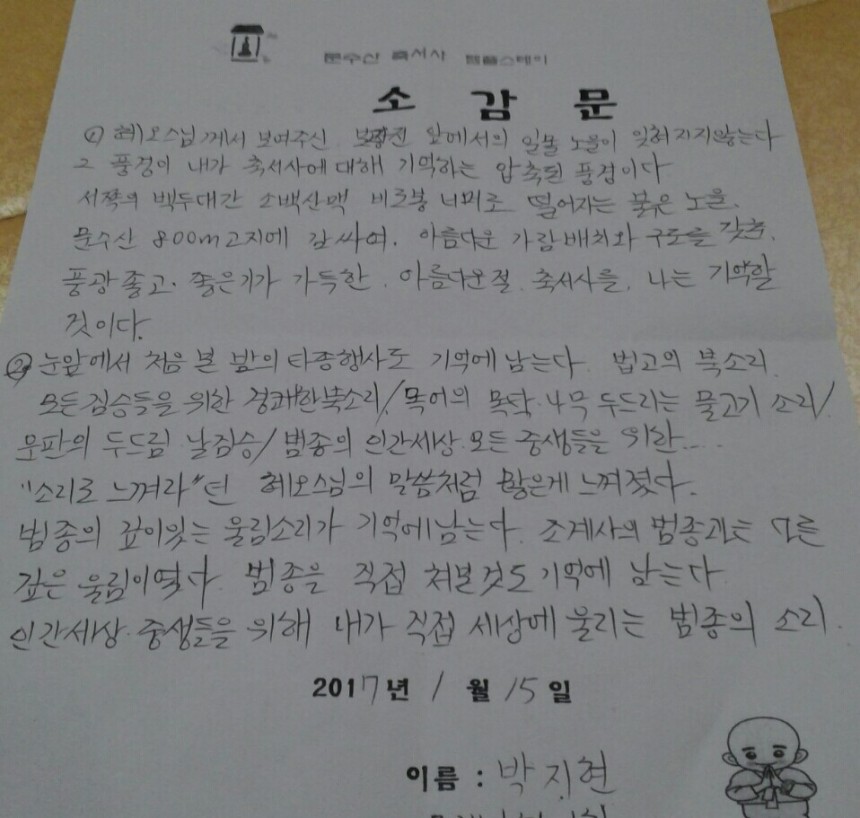 문수산 축서사 템플스테이
소 감 문
① 혜오스님께서 보여주신 보광전 앞에서의 일몰 노을이 잊혀지지않는다
그 풍경이 내가 축서사에대해 기억하는 압축된 풍경이다
서쪽의 백두대간 소백산맥 비로봉 너머로 떨어지는 붉은 노을.
문수산 800m고지에 감싸여. 아름다운 가람배치와 구도를 갖춘.
풍광좋고. 좋은기가 가득한. 아름다운절. 축서사를. 나는 기억할
것이다.
② 눈앞에서 처음 본 밤의 타종행사도 기억에 남는다. 법고의 북소리.
모든짐승들을 위한 경쾌한북소리/목어의 목탁.나무 두드리는 물고기 소리/
운판의 두드림 날짐승/범종의 인간세상.모든 중생들을 위한....
"소리로 느껴라"던 혜오스님의 말씀처럼 많은게 느껴졌다.
범종의 깊이있는 울림소리가 기억에남는다. 조계사의 범종과는 다른
깊은 울림이였다. 범종을 직접 쳐본것도 기억에 남는다
인간세상.중생들을 위해 내가 직접 세상에 울리는 범종의 소리.
2017년 1월 15일
이름 : 박지현